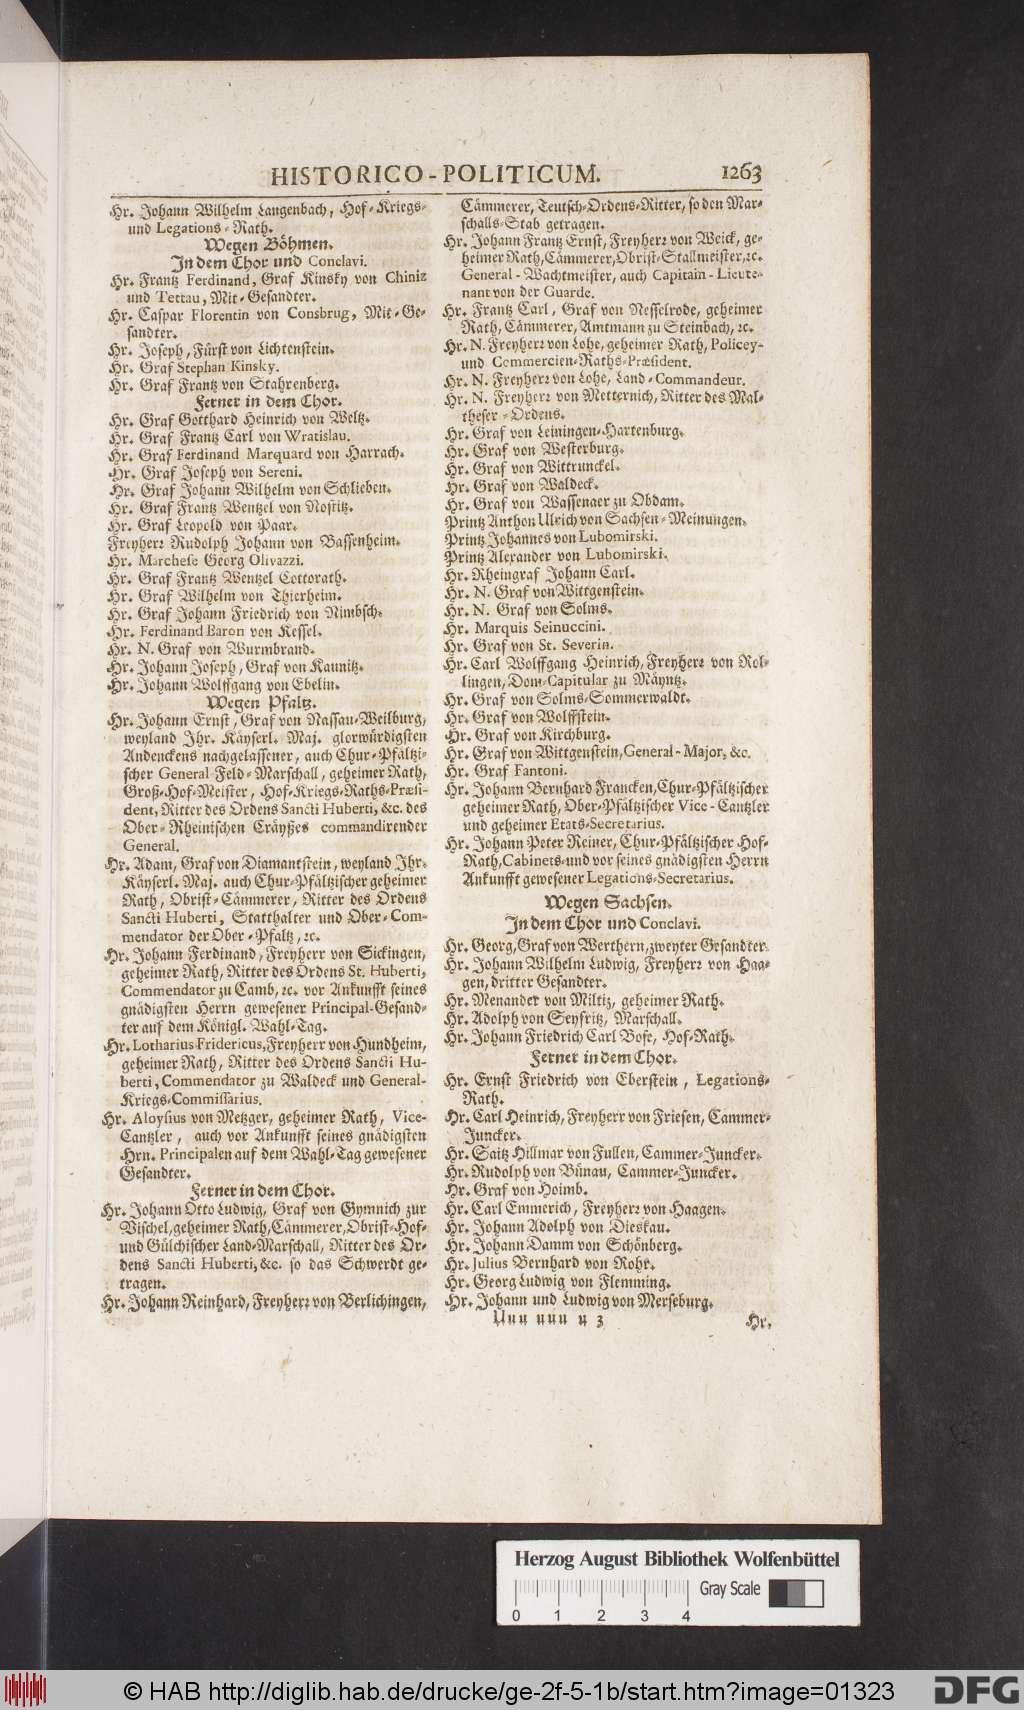 HISTORICO-POLITICUM. 1263
Hr. Johann Wilhelm Langenbach, Hof-Kriegs-
und Legations-Rath.
Wegen Böhmen.
In dem Chor und Conclavi.
Hr. Frantz Ferdinand, Graf Kinsky von Chiniz
und Tettau, Mit-Gesandter.
Hr. Caspar Florentin von Consbrug, Mit-Ge-
sandter.
Hr. Joseph, Fürst von Lichtenstein.
Hr. Graf Stephan Kinsky.
Hr. Graf Frantz von Stahrenberg.
Ferner in dem Chor.
Hr. Graf Gotthard Heinrich von Weltz.
Hr. Graf Frantz Carl von Wratislau.
Hr. Graf Ferdinand Marquard von Harrach.
Hr. Graf Joseph von Sereni.
Hr. Graf Johann Wilhelm von Schlieben.
Hr. Graf Frantz Wentzel von Nostitz.
Hr. Graf Leopold von Paar.
Freyherr Rudolph Johann von Bassenheim.
Hr. Marchese Georg Olivazzi.
Hr. Graf Frantz Wentzel Cottorath.
Hr. Graf Wilhelm von Thierheim.
Hr. Graf Johann Friedrich von Nimbsch.
Hr. Ferdinand Baron von Kessel.
Hr. N. Graf von Wurmbrand.
Hr. Johann Joseph, Graf von Kaunitz.
Hr. Johann Wolffgang von Ebelin.
Wegen Pfaltz.
Hr. Johann Ernst, Graf von Nassau-Weilburg,
weyland Jhr. Käyserl. Maj. glorwürdigsten
Andenckens nachgelassener, auch Chur-Pfältzi-
scher General Feld-Marschall, geheimer Rath,
Groß-Hof-Meister, Hof-Kriegs-Raths-Præsi-
dent, Ritter des Ordens Sancti Huberti, &c. des
Ober-Rheinischen Cräyßes commandirender
General.
Hr. Adam, Graf von Diamantstein, weyland Jhr.
Käyserl. Maj. auch Chur-Pfältzischer geheimer
Rath, Obrist-Cämmerer, Ritter des Ordens
Sancti Huberti, Statthalter und Ober-Com-
mendator der Ober-Pfaltz, ꝛc.
Hr. Johann Ferdinand, Freyherr von Sickingen,
geheimer Rath, Ritter des Ordens St. Huberti,
Commendator zu Camb, ꝛc. vor Ankunfft seines
gnädigsten Herrn gewesener Principal-Gesand-
ter auf dem Königl. Wahl-Tag.
Hr. Lotharius Fridericus, Freyherr von Hundheim,
geheimer Rath, Ritter des Ordens Sancti Hu-
berti, Commendator zu Waldeck und General-
Kriegs-Commissarius.
Hr. Aloysius von Metzger, geheimer Rath, Vice-
Cantzler, auch vor Ankunfft seines gnädigsten
Hrn. Principalen auf dem Wahl-Tag gewesener
Gesandter.
Ferner in dem Chor.
Hr. Johann Otto Ludwig, Graf von Gymnich zur
Vischel, geheimer Rath, Cämmerer, Obrist-Hof-
und Gülchischer Land-Marschall, Ritter des Or-
dens Sancti Huberti, &c. so das Schwerdt ge-
tragen.
Hr. Johann Reinhard, Freyherr von Berlichingen,
Cämmerer, Teutsch-Ordens-Ritter, so den Mar-
schalls-Stab getragen.
Hr. Johann Frantz Ernst, Freyherr von Weick, ge-
heimer Rath, Cämmerer, Obrist-Stallmeister, ꝛc.
General-Wachtmeister, auch Capitain-Lieute-
nant von der Guarde.
Hr. Frantz Carl, Graf von Nesselrode, geheimer
Rath, Cämmerer, Amtmann zu Steinbach, ꝛc.
Hr. N. Freyherr von Lohe, geheimer Rath, Policey-
und Commercien-Raths-Præsident.
Hr. N. Freyherr von Lohe, Land-Commandeur.
Hr. N. Freyherr von Metternich, Ritter des Mal-
theser-Ordens.
Hr. Graf von Leiningen-Hartenburg.
Hr. Graf von Westerburg.
Hr. Graf von Wittrunckel.
Hr. Graf von Waldeck.
Hr. Graf von Wassenaer zu Obdam.
Printz Anthon Ulrich von Sachsen-Meinungen.
Printz Johannes von Lubomirski.
Printz Alexander von Lubomirski.
Hr. Rheingraf Johann Carl.
Hr. N. Graf von Wittgenstein.
Hr. N. Graf von Solms.
Hr. Marquis Seinuccini.
Hr. Graf von St. Severin.
Hr. Carl Wolffgang Heinrich, Freyherr von Rol-
lingen, Dom-Capitular zu Mäyntz.
Hr. Graf von Solms-Sommerwaldt.
Hr. Graf von Wolffstein.
Hr. Graf von Kirchburg.
Hr. Graf von Wittgenstein, General-Major, &c.
Hr. Graf Fantoni.
Hr. Johann Bernhard Francken, Chur-Pfältzischer
geheimer Rath, Ober-Pfältzischer Vice-Cantzler
und geheimer Etats-Secretarius.
Hr. Johann Peter Reiner, Chur-Pfältzischer Hof-
Rath, Cabinets-und vor seines gnädigsten Herrn
Ankunfft gewesener Legations-Secretarius.
Wegen Sachsen.
In dem Chor und Conclavi.
Hr. Georg, Graf von Werthern, zweyter Gesandter.
Hr. Johann Wilhelm Ludwig, Freyherr von Haa-
gen, dritter Gesandter.
Hr. Menander von Miltiz, geheimer Rath.
Hr. Adolph von Seyfritz, Marschall.
Hr. Johann Friedrich Carl Bose, Hof-Rath.
Ferner in dem Chor.
Hr. Ernst Friedrich von Eberstein, Legations-
Rath.
Hr. Carl Heinrich, Freyherr von Friesen, Cammer-
Juncker.
Hr. Saitz Hillmar von Fullen, Cammer-Juncker.
Hr. Rudolph von Bünau, Cammer-Juncker.
Hr. Graf von Hoimb.
Hr. Carl Emmerich, Freyherr von Haagen.
Hr. Johann Adolph von Dieskau.
Hr. Johann Damm von Schönberg.
Hr. Julius Bernhard von Rohr.
Hr. Georg Ludwig von Flemming.
Hr. Johann und Ludwig von Merseburg.
Uuu uuu u 3 Hr.
Herzog August Bibliothek Wolfenbüttel
Gray Scale
0 1 2 3 4
© HAB http://diglib.hab.de/drucke/ge-2f-5-1b/start.htm?image=01323
DFG